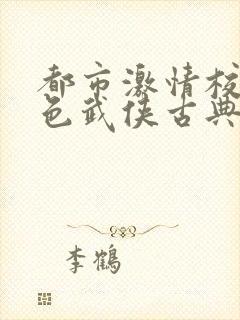 都市激情校
色武侠古典
李鹤